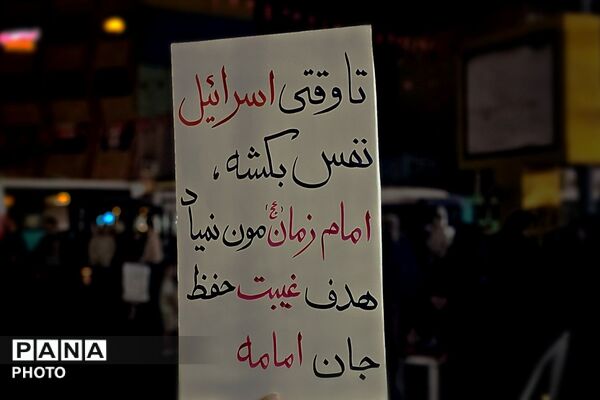 تا وقتی اسرائیل
نفس بکشه،
امام زمان (عج) مون نمیاد
هدف غیبت حفظ
جان امامه
PANA
PHOTO